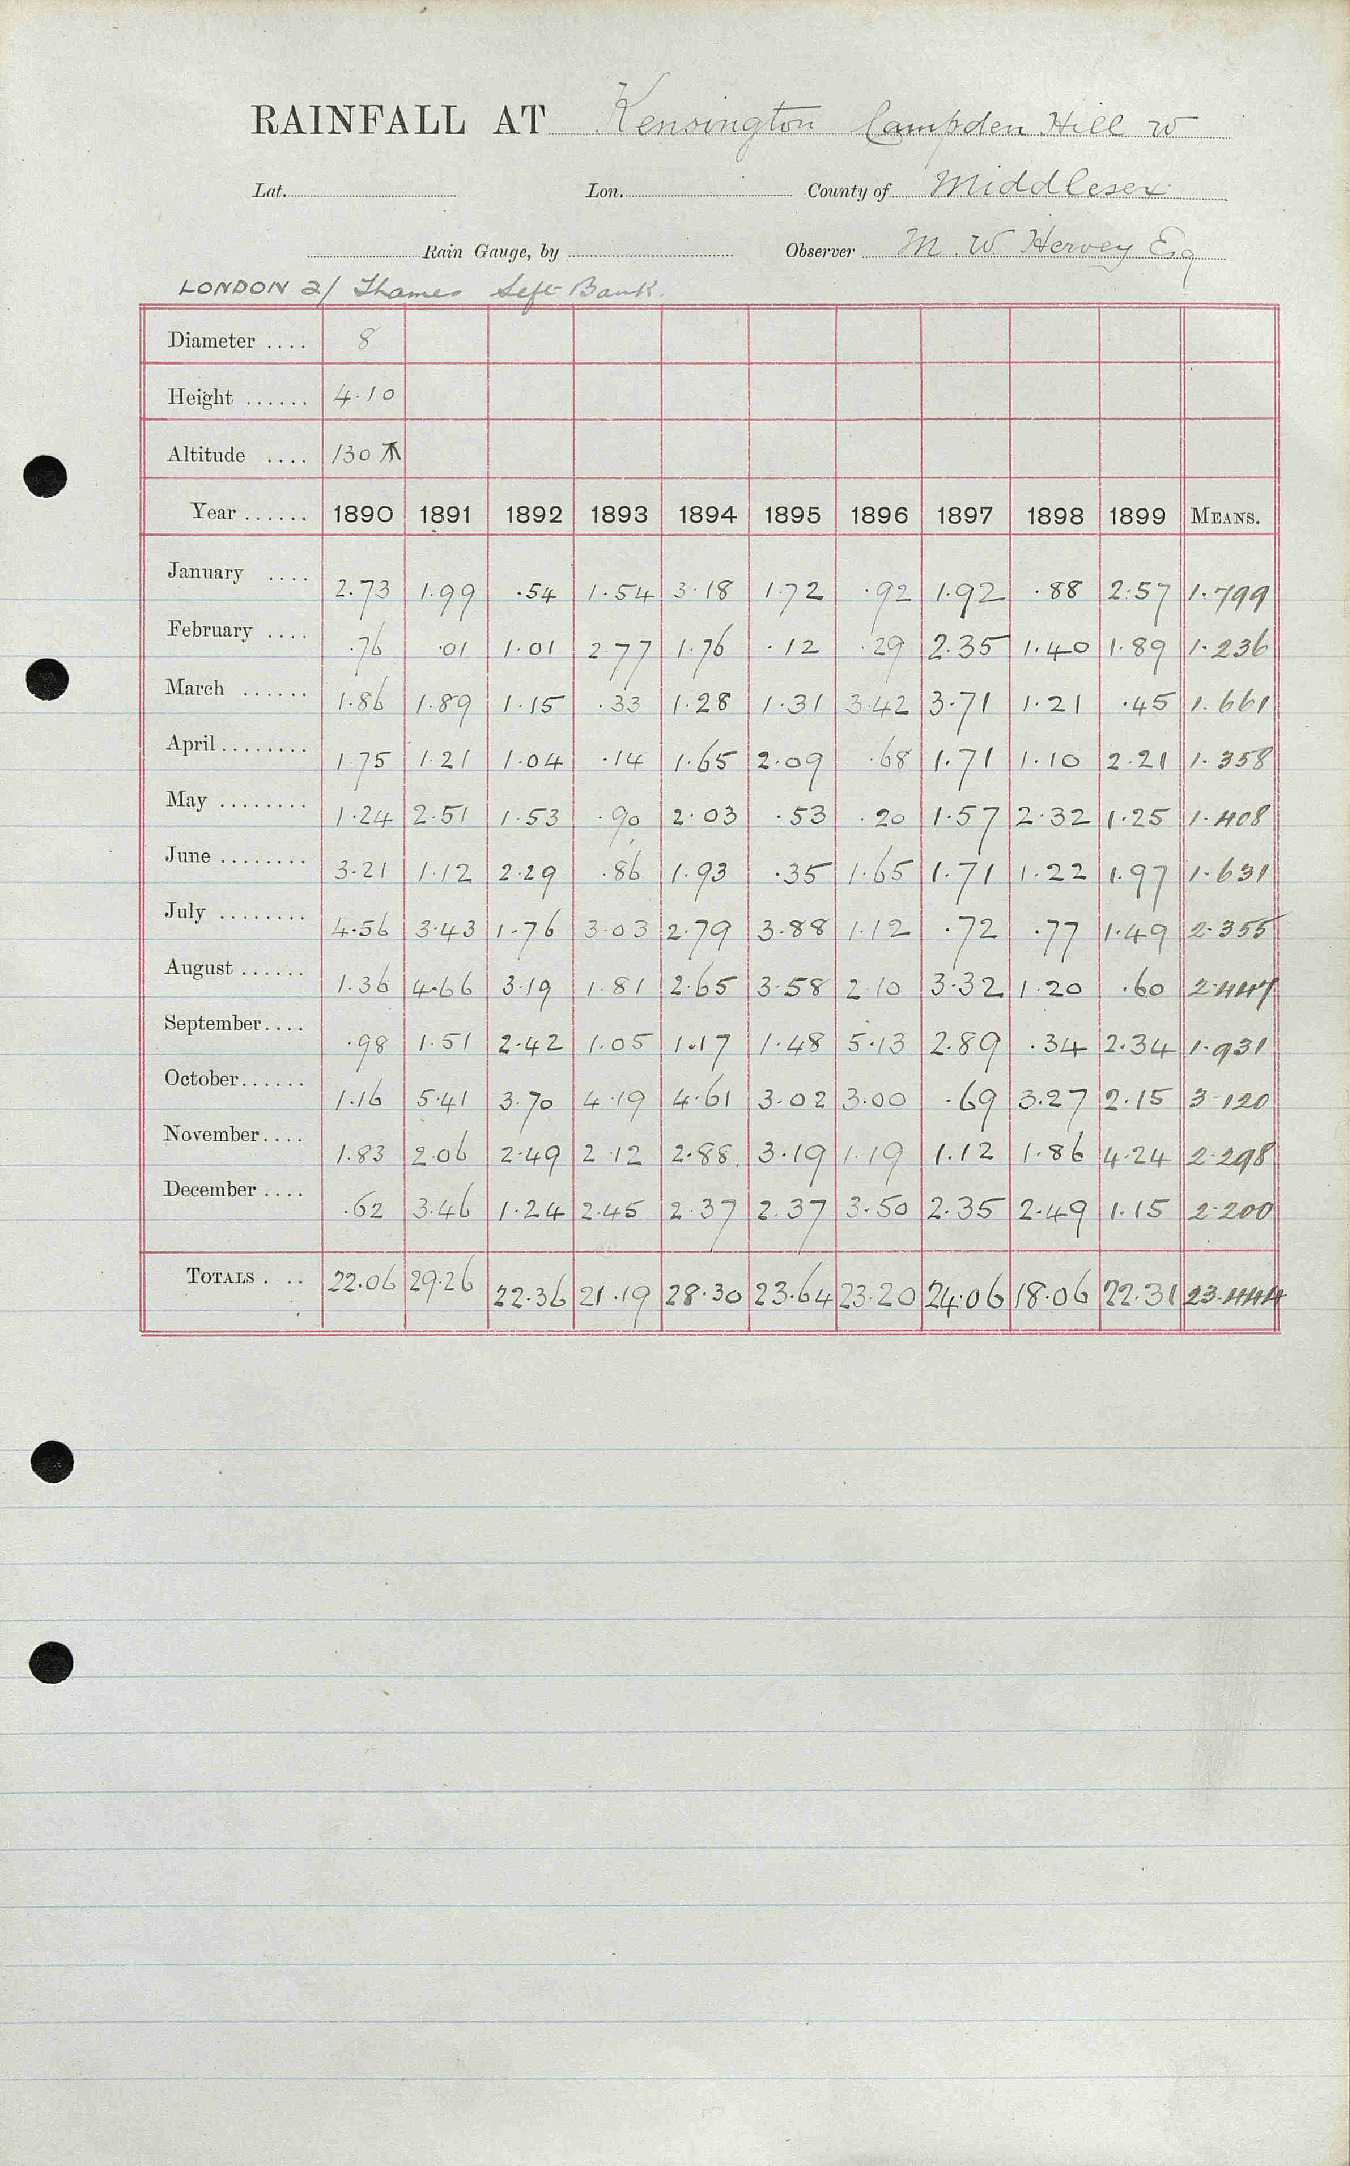 RAINFALL AT Kensington Campden Hill W
Lat. Lon. County of Middlesex
Rain Gauge, by Observer M. W Hervey Esq
LONDON 2/ Thames Left Bank.
Diameter .... 8
Height ...... 4.10
Altitude .... 130
Year ...... 1890 1891 1892 1893 1894 1895 1896 1897 1898 1899 MEANS.
January .... 2.73 1.99 .54 1.54 3.18 1.72 .92 1.92 .88 2.57 1.799
February .... .76 .01 1.01 2.77 1.76 .12 .29 2.35 1.40 1.89 1.236
March ...... 1.86 1.89 1.15 .33 1.28 1.31 3.42 3.71 1.21 .45 1.661
April ........ 1.75 1.21 1.04 .14 1.65 2.09 .68 1.71 1.10 2.21 1.358
May ........ 1.24 2.51 1.53 .90 2.03 .53 .20 1.57 2.32 1.25 1.408
June ........ 3.21 1.12 2.29 .86 1.93 .35 1.65 1.71 1.22 1.97 1.631
July ........ 4.56 3.43 1.76 3.03 2.79 3.88 1.12 .72 .77 1.49 2.355
August ...... 1.36 4.66 3.19 1.81 2.65 3.58 2.10 3.32 1.20 .60 2.447
September.... .98 1.51 2.42 1.05 1.17 1.48 5.13 2.89 .34 2.34 1.931
October...... 1.16 5.41 3.70 4.19 4.61 3.02 3.00 .69 3.27 2.15 3.120
November.... 1.83 2.06 2.49 2.12 2.88 3.19 1.19 1.12 1.86 4.24 2.298
December .... .62 3.46 1.24 2.45 2.37 2.37 3.50 2.35 2.49 1.15 2.200
TOTALS . .. 22.06 29.26 22.36 21.19 28.30 23.64 23.20 24.06 18.06 22.31 23.444